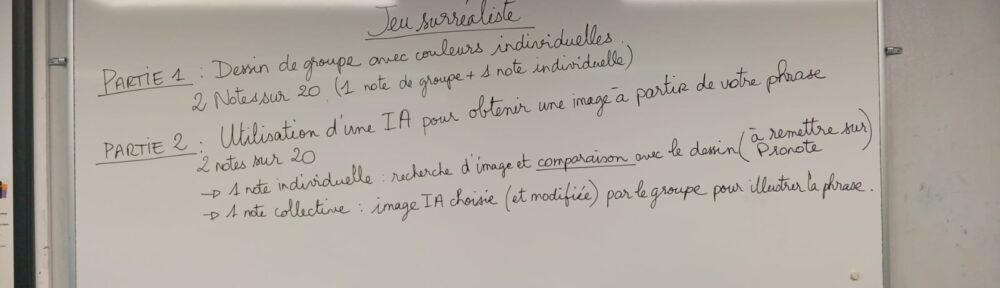 Jeu surréaliste
PARTIE 1 : Dessin de groupe avec couleurs individuelles.
2 Notes sur 20. (1 note de groupe + 1 note individuelle)
PARTIE 2 : Utilisation d'une IA pour obtenir une image à partir de votre phrase
2 notes sur 20
→ 1 note individuelle : recherche d'image et comparaison avec le dessin (à remettre sur Pronote)
→ 1 note collective : image IA choisie (et modifiée) par le groupe pour illustrer la phrase.